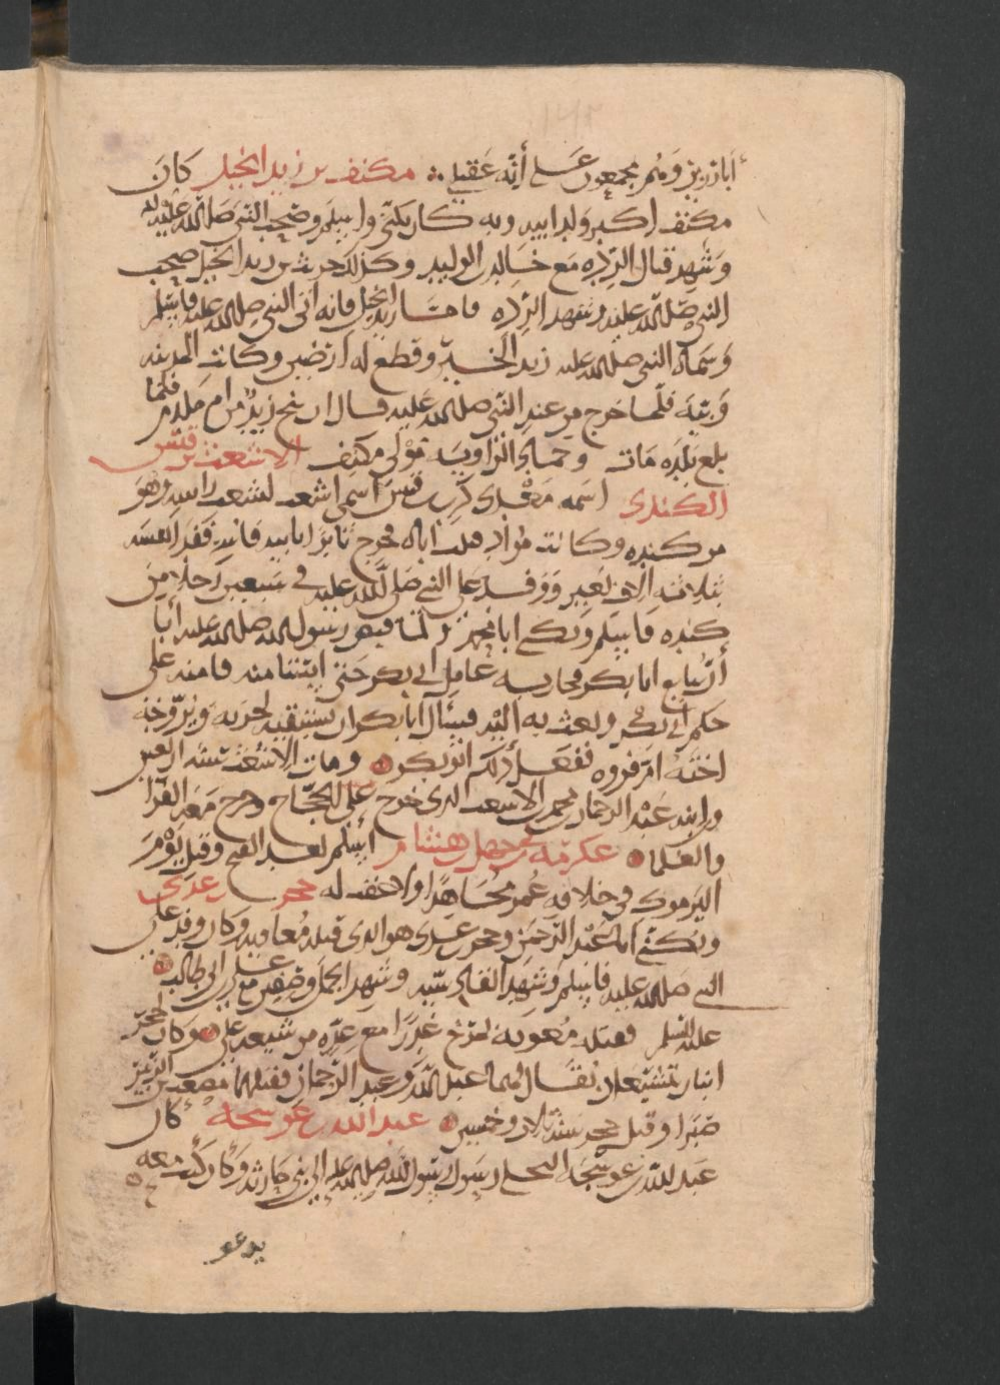 أبا رزين وهم مجمعون على أنه عقيلي ∴ مكنف بن زيد الخيل كان
مكنف اكبر ولد ابيه وبه كان يكنى واسلم وصحب النبي صلى الله عليه
وشهد قتال الرده مع خالد بن الوليد وكذلك حريث بن زيد الخيل صحب
النبي صلى الله عليه وشهد الرده فاما زيد الخيل فانه اتى النبي صلى الله عليه فاسلم
وسماه النبي صلى الله عليه زيد الخير وقطع له ارضين وكانت المدينه
وبئة فلما خرج من عند النبي صلى الله عليه قال ان ينج زيد من ام ملدم فلما
بلغ بلده مات وحماد الراوية مولى مكنف الاشعث بن قيس
الكندى اسمه معدى كرب بن قيس اسمى اشعث لشعث راسه وهو
من كنده وكانت مراد قتلت اباه فخرج ثائرا بابيه فاسر ففدا نفسه
بثلاثة آلاف بعير ووفد على النبي صلى الله عليه في سبعين رجلا من
كنده فاسلم ويكنى ابا محمد ولما قبض رسول الله صلى الله عليه أبا
أن يبايع ابا بكر فحاربه عامل ابى بكر حتى استامنه فامنه على
حكم ابي بكر وبعث به اليه فسأل ابا بكر ان يستبقيه لحربه ويزوجه
اخته ام فروه ففعل ذلك ابو بكر ومات الاشعث سنة اربعين
وابنه عبد الرحمن بن محمد بن الاشعث الذى خرج على الحجاج وخرج معه القرا
والعلما عكرمه بن ابى جهل بن هشام أسلم بعد الفتح وقتل يوم
اليرموك في خلافة عمر مجاهدا ولا عقب له حجر بن عدى
ويكنى ابا عبد الرحمن وحجر بن عدى هو الذى قتله معاوية وكان وفد على
النبي صلى الله عليه فاسلم وشهد القادسيه وشهد الجمل وصفين مع على بن ابى طالب
عليه السلم فقتله معوية بمرج غدرا مع عدة من شيعه على وكان لحجر
ابنان يتشيعان يقال لهما عبد الله وعبد الرحمان فقتلهما مصعب بن الزبير
صبرا وقتل حجر سنة ثلاث وخمسين عبد الله بن عوسجه كان
عبد الله بن عوسجه البجلى رسول رسول الله صلى الله عليه الى بنى حارثه وكان كتب معه
يدعو